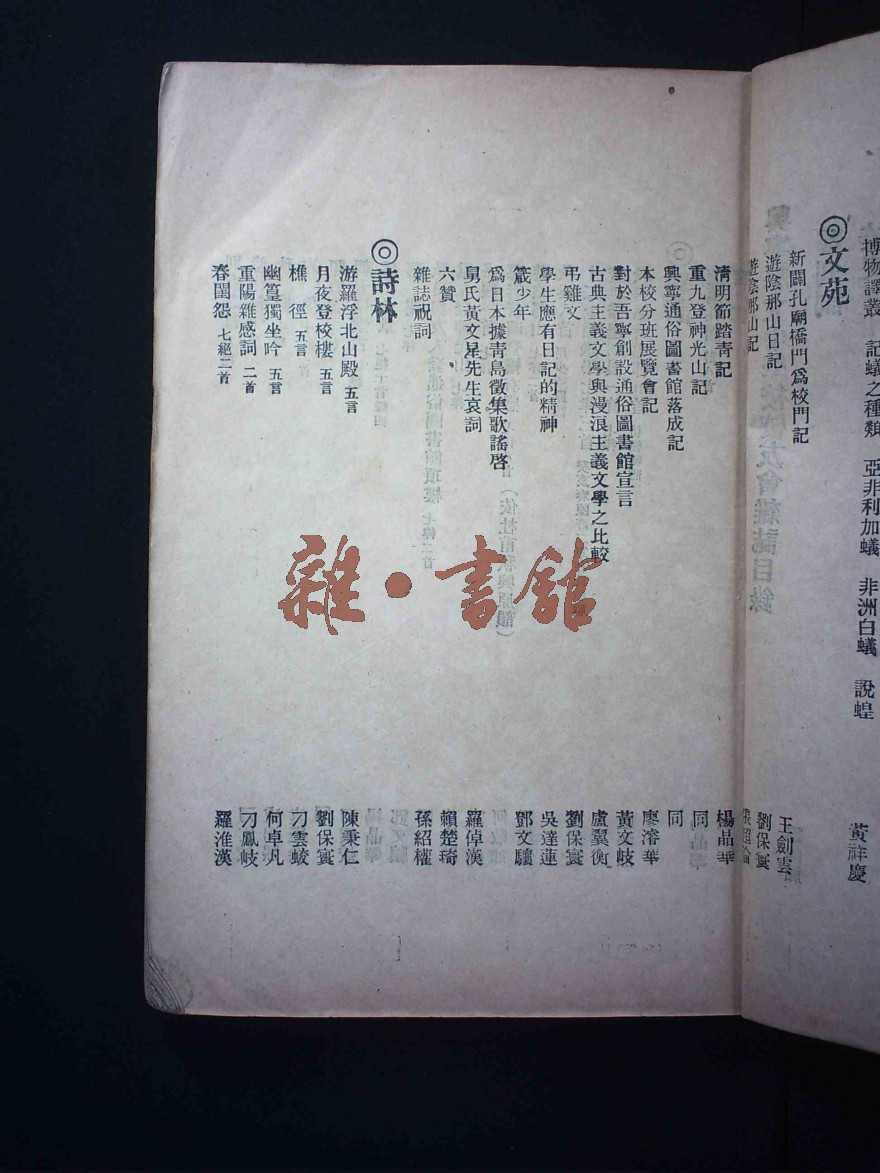 博物譯叢　記蟻之種類　亞非利加蟻　非洲白蟻　說蝗　黃祥慶
◎文苑
新闢孔廟橋門爲校門記　王劍雲
遊陰那山日記　劉保寰
遊陰那山記
清明節踏青記　楊晶華
重九登神光山記　同
興寧通俗圖書館落成記　同
本校分班展覽會記　廖濬華
對於吾寧創設通俗圖書館宣言　黃文岐
古典主義文學與漫浪主義文學之比較　盧翼衡
弔雞文　劉保寰
學生應有日記的精神　吳達蓮
箴少年　鄧文驤
爲日本據靑島徵集歌謠啓
舅氏黃文星先生哀詞　羅倬漢
六贊　賴楚琦
雜誌祝詞　孫紹權
◎詩林
游羅浮北山殿　五言　陳秉仁
月夜登校樓　五言　劉保寰
樵徑　五言　刁雲崚
幽篁獨坐吟　五言　何卓凡
重陽雜感詞　二首　刁鳳岐
春閨怨　七絕二首　羅淮漢
雜·書館